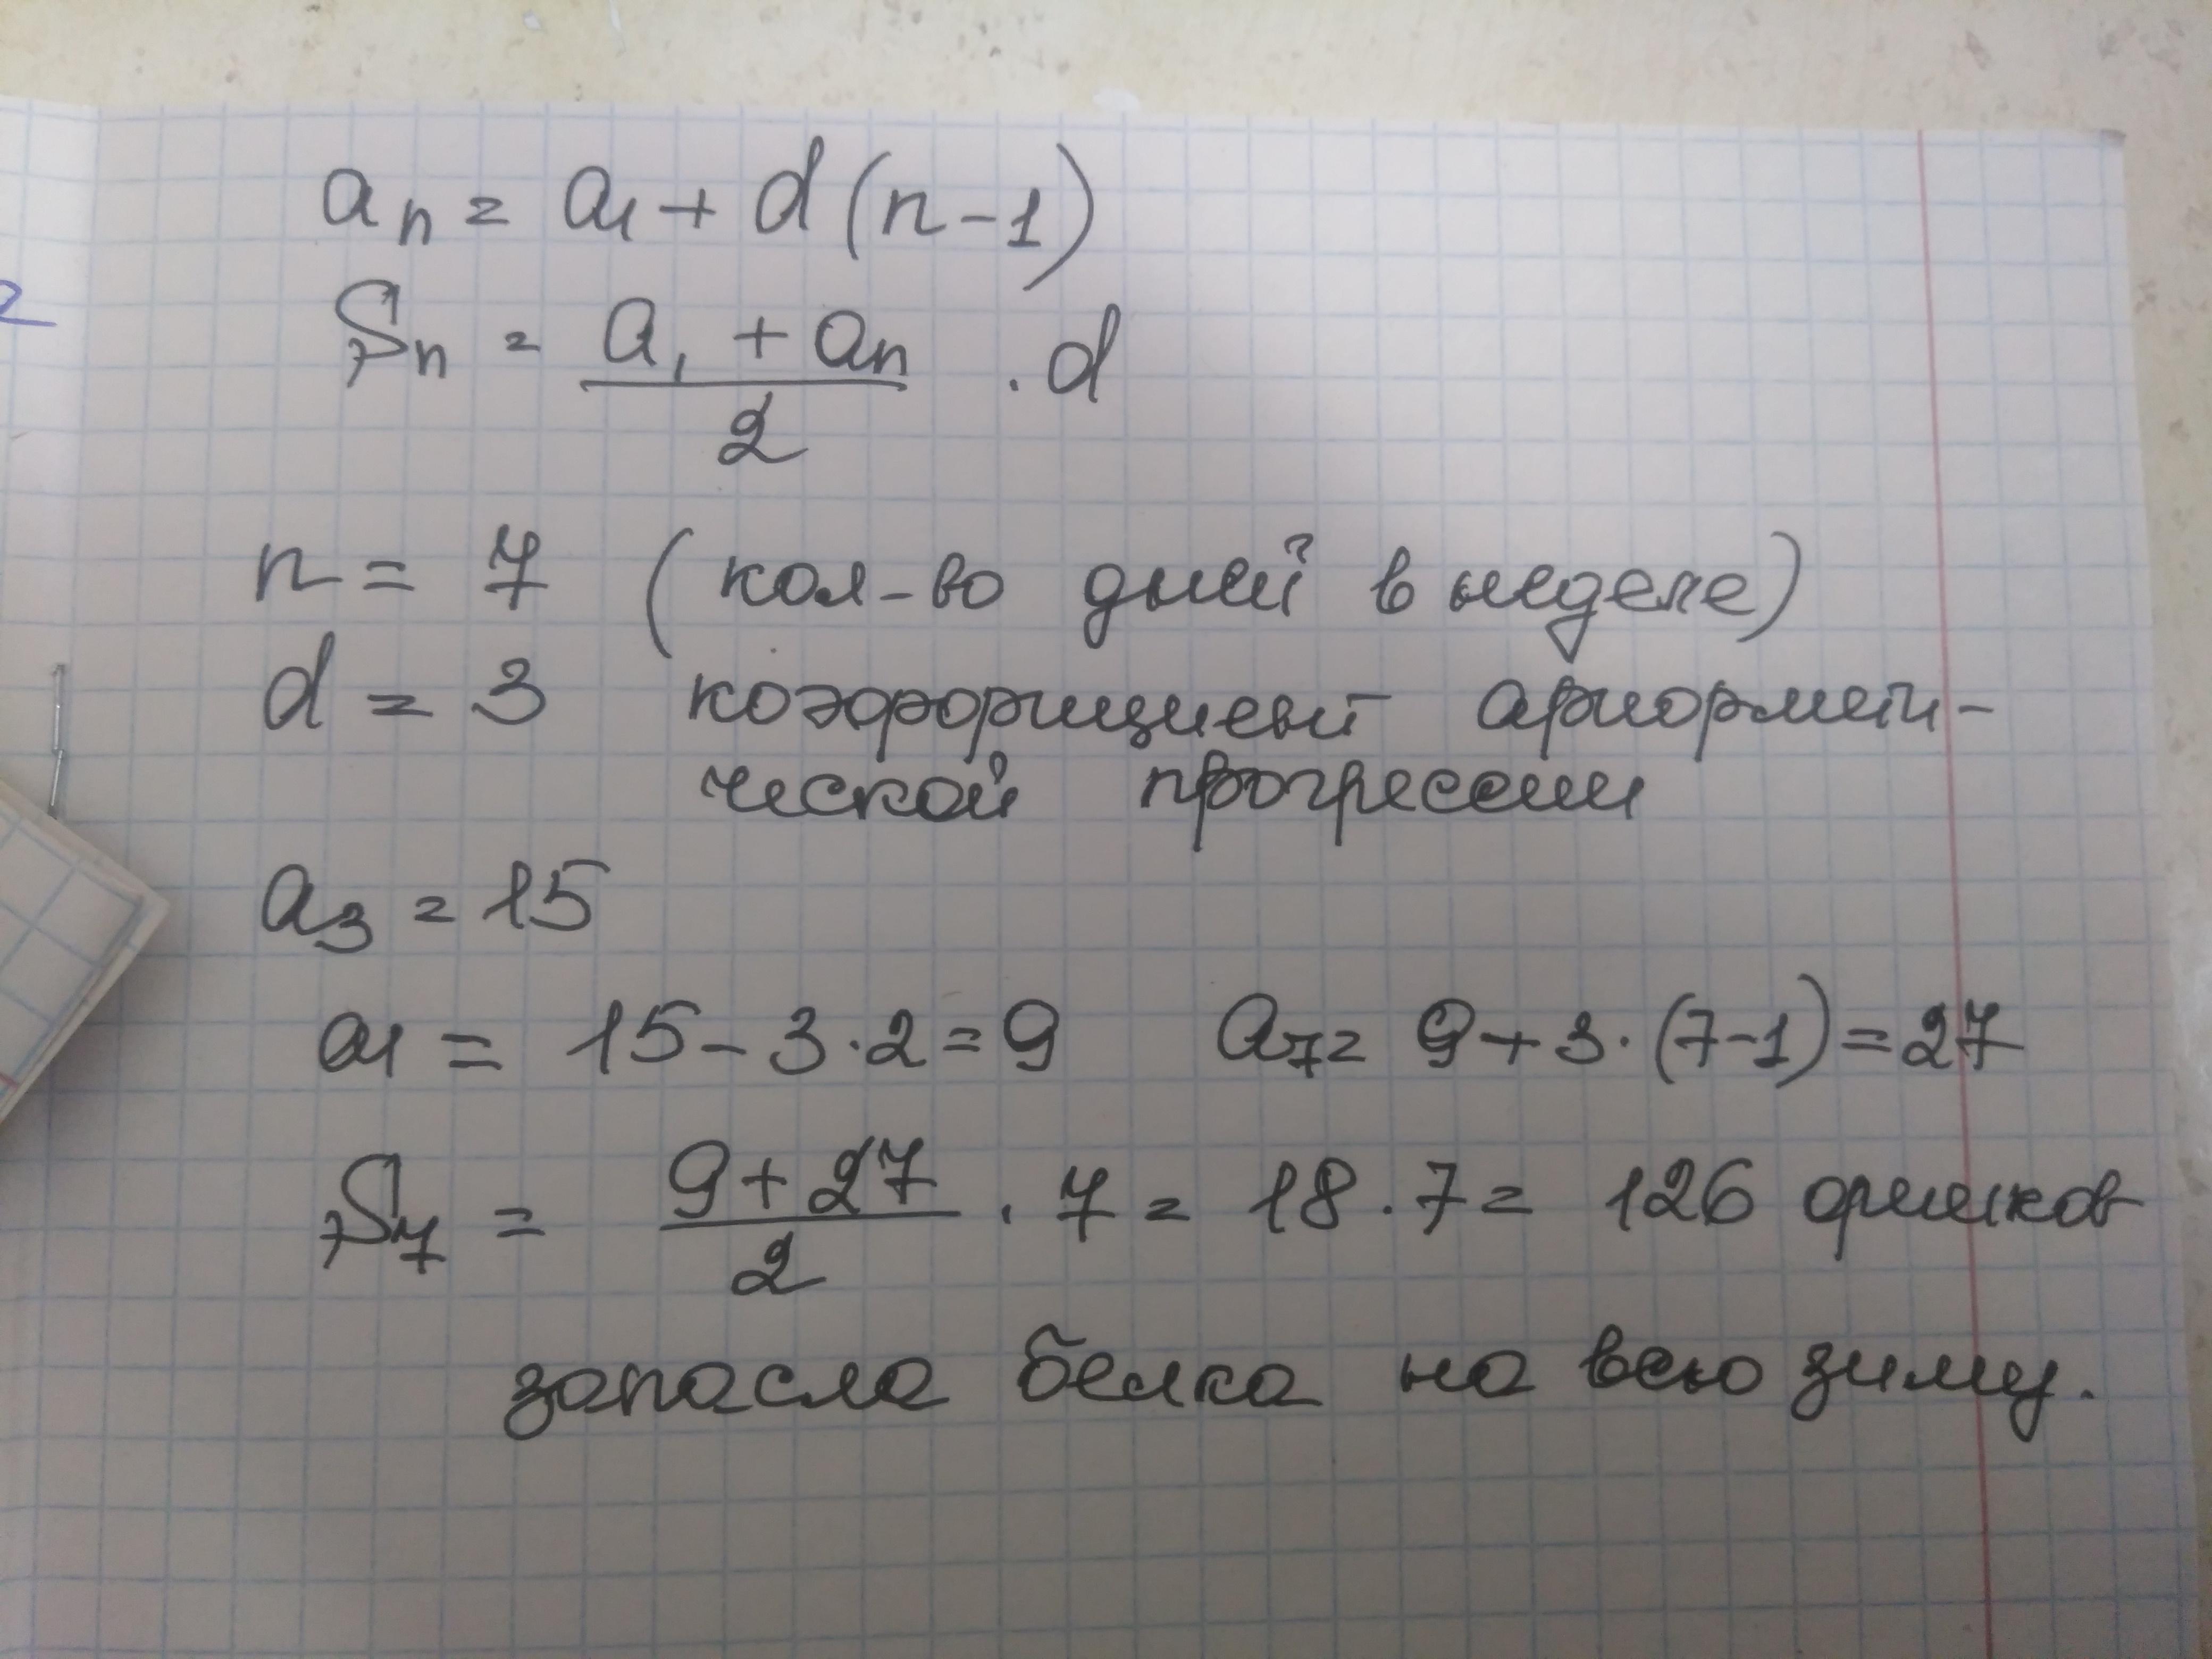 aₙ = a₁ + d(n-1)
Sₙ = (a₁ + aₙ)/2 · d
n = 7 (кол-во дней в неделе)
d = 3 коэффициент арифмети-
ческой прогрессии
a₃ = 15
a₁ = 15 - 3·2 = 9 a₇ = 9 + 3·(7-1) = 27
S₇ = (9 + 27)/2 · 7 = 18·7 = 126 орешков
запасла белка на всю зиму.